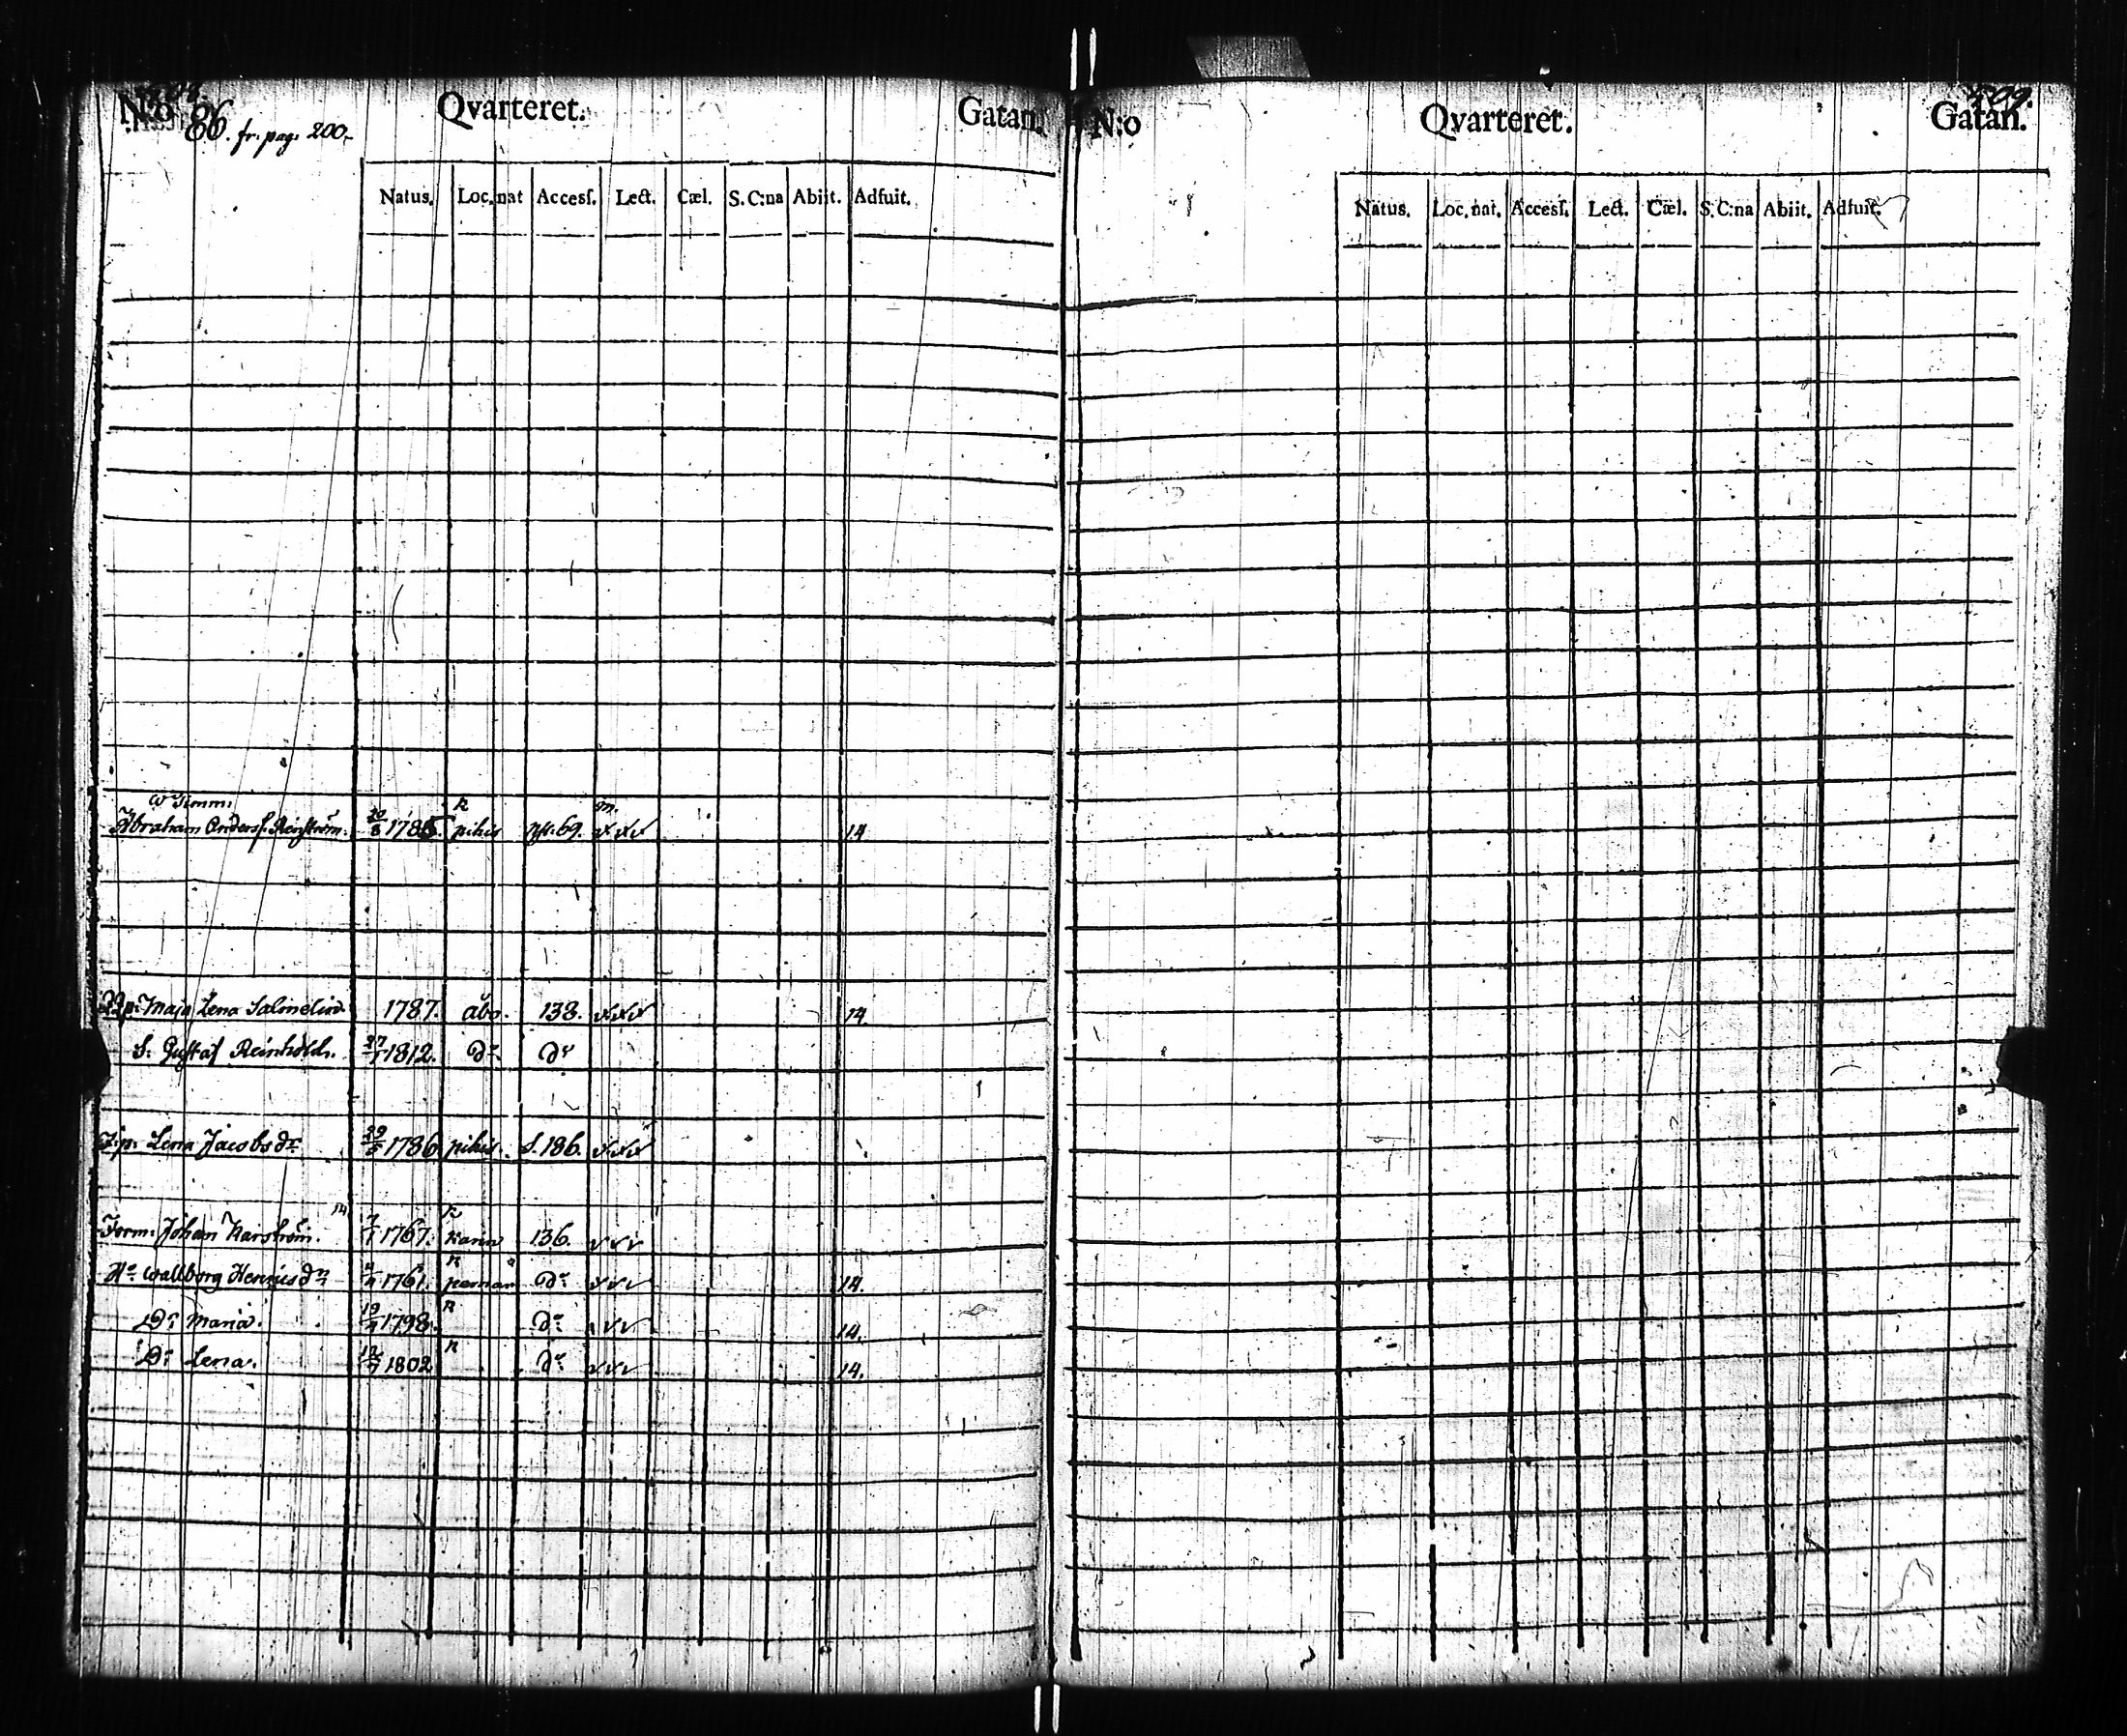 N:o 86. fr. pag. 200. Qvarteret. Gatan.
Natus. Loc. nat Accesſ. Lect. Cæl. S. C:na Abiit. Adfuit.
w Timm.
Abraham Andersſ. Renström. 20/8 1785 k pikis 69. m. v v v 14
Maja Lena Salmelin 1787. åbo. 138. v v v 14.
S. Gustaf Reinhold. 27/1 1812. do do
p. Lena Jacobsdr 29/5 1786 pikis. S. 186. v v v
14 k
Form: Johan Karström. 7/1 1767. Karin 136. v v v
k
Ho Wallborg Henricsdr 4/4 1761. pemar do v v v 14.
Dr Maria. 19/4 1798. k do v v v 14.
Dr Lena. 12/7 1802 k do v v v 14.
N:o Qvarteret. 209. Gatan.
Natus. Loc. nat. Accesſ. Lect. Cæl. S. C:na Abiit. Adfuit.